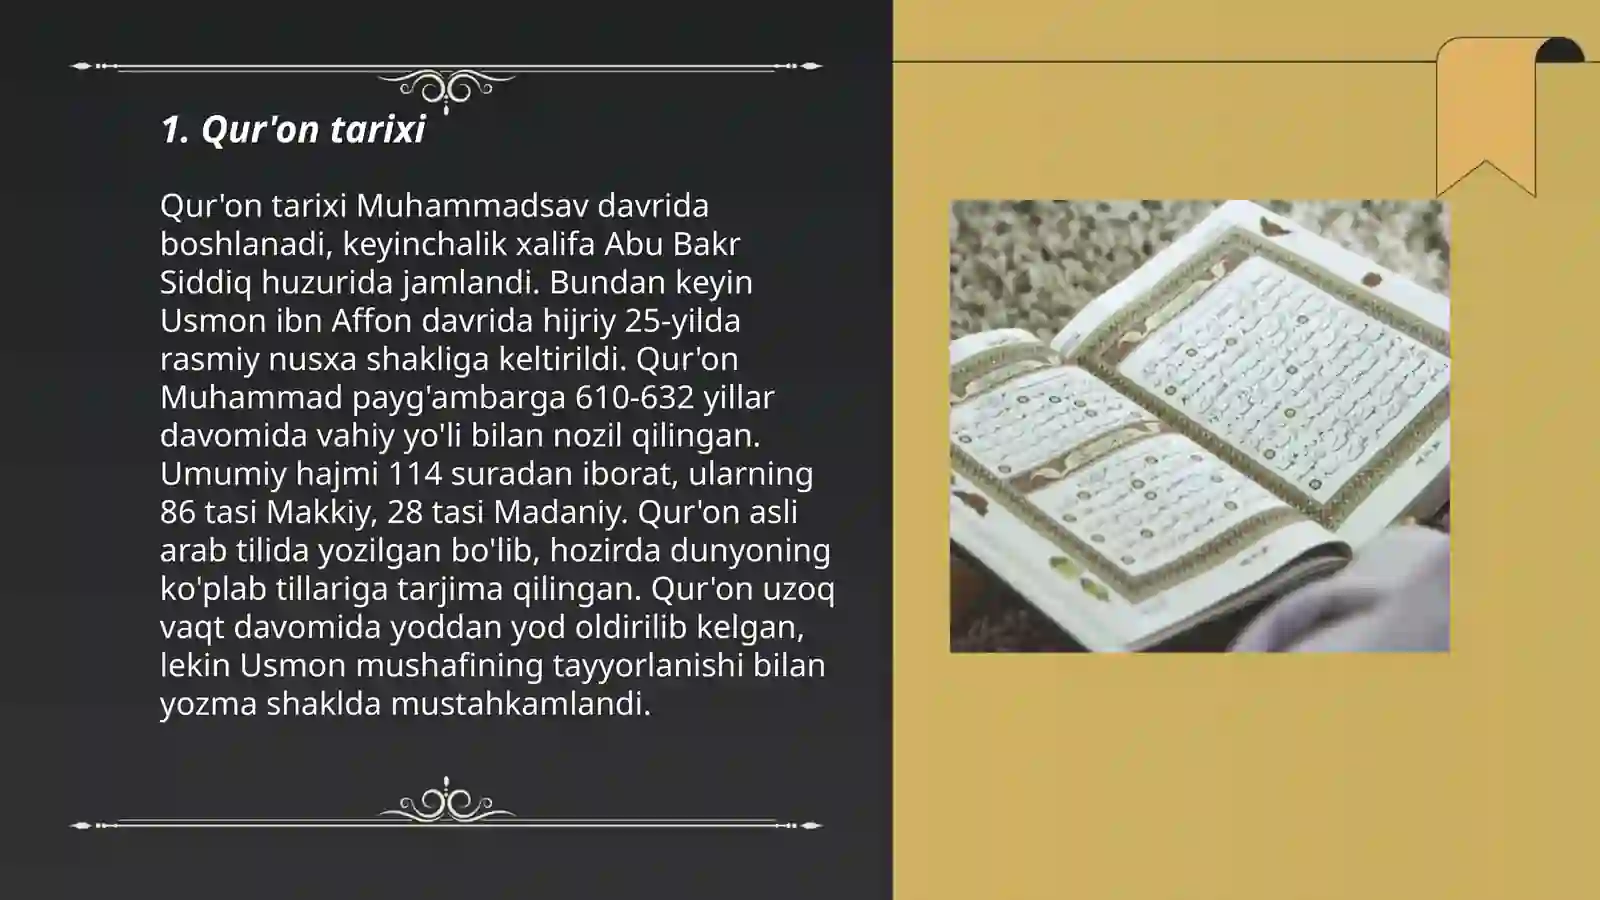 1. Qur'on tarixi
Qur'on tarixi Muhammadsav davrida
boshlanadi, keyinchalik xalifa Abu Bakr
Siddiq huzurida jamlandi. Bundan keyin
Usmon ibn Affon davrida hijriy 25-yilda
rasmiy nusxa shakliga keltirildi. Qur'on
Muhammad payg'ambarga 610-632 yillar
davomida vahiy yo'li bilan nozil qilingan.
Umumiy hajmi 114 suradan iborat, ularning
86 tasi Makkiy, 28 tasi Madaniy. Qur'on asli
arab tilida yozilgan bo'lib, hozirda dunyoning
ko'plab tillariga tarjima qilingan. Qur'on uzoq
vaqt davomida yoddan yod oldirilib kelgan,
lekin Usmon mushafining tayyorlanishi bilan
yozma shaklda mustahkamlandi.